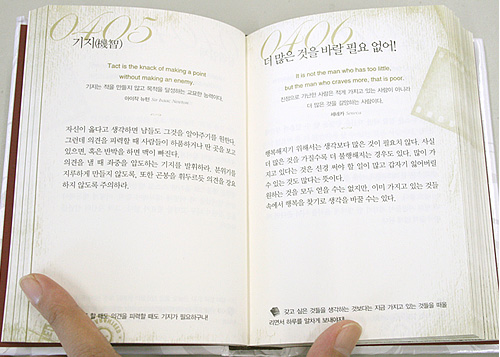 0405
기지(機智)
Tact is the knack of making a point
without making an enemy.
기지는 적을 만들지 않고 목적을 달성하는 교묘한 능력이다.
아이작 뉴턴 Sir Isaac Newton
자신이 옳다고 생각하면 남들도 그것을 알아주기를 원한다.
그런데 의견을 피력할 때 사람들이 하품하거나 딴 곳을 보고
있으면, 혹은 반박을 하면 맥이 빠진다.
의견을 낼 때 좌중을 압도하는 기지를 발휘하라. 분위기를
지루하게 만들지 않도록, 또한 곤봉을 휘두르듯 의견을 강요
하지 않도록 주의하라.
할 때도 의견을 피력할 때도 기지가 필요하구나!
0406
더 많은 것을 바랄 필요 없어!
It is not the man who has too little,
but the man who craves more, that is poor.
진정으로 가난한 사람은 적게 가지고 있는 사람이 아니라
더 많은 것을 갈망하는 사람이다.
세네카 Seneca
행복해지기 위해서는 생각보다 많은 것이 필요치 않다. 사실
더 많은 것을 가질수록 더 불행해지는 경우도 있다. 많이 가
지고 있다는 것은 신경 써야 할 일이 많고 갑자기 잃어버릴
수 있는 것도 많다는 뜻이다.
원하는 것을 모두 얻을 수는 없지만, 이미 가지고 있는 것들
속에서 행복을 찾기로 생각을 바꿀 수는 있다.
갖고 싶은 것들을 생각하는 것보다는 지금 가지고 있는 것들을 떠올
리면서 하루를 알차게 보내야지!